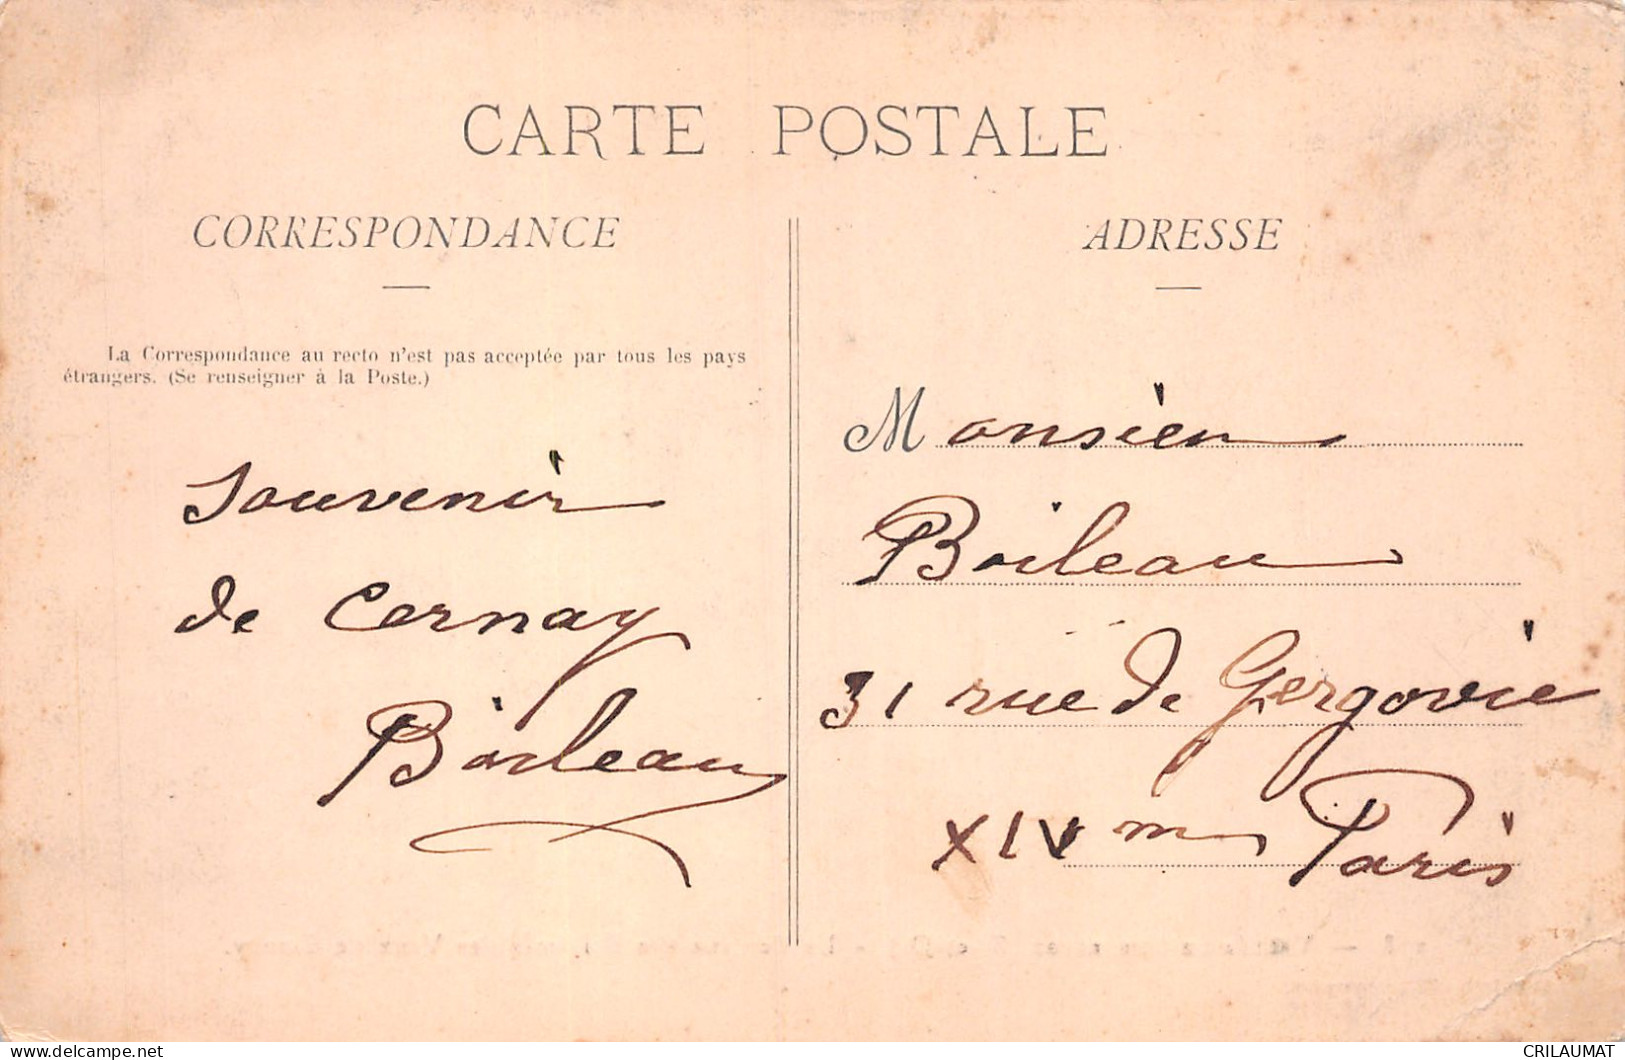 CARTE POSTALE
CORRESPONDANCE
La Correspondance au recto n'est pas acceptée par tous les pays
étrangers. (Se renseigner à la Poste.)
Souvenir
de Cernay
Boileau
ADRESSE
Monsieur
Boileau
31 rue de Gergovie
XIVm Paris
CRILAUMAT